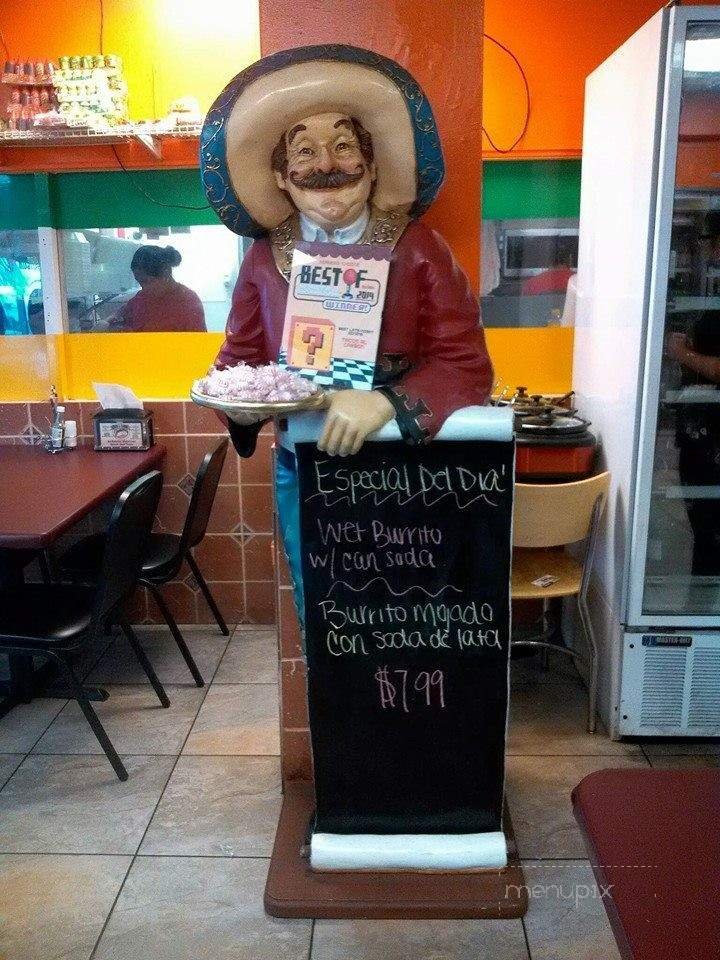 BEST OF
2014
WINNER!
BEST LATE NIGHT
TACOS EL
Especial Del Dia
Wet Burrito
w/ can soda
Burrito Mojado
Con soda de lata
$7.99
MASTER-BILT
menupix